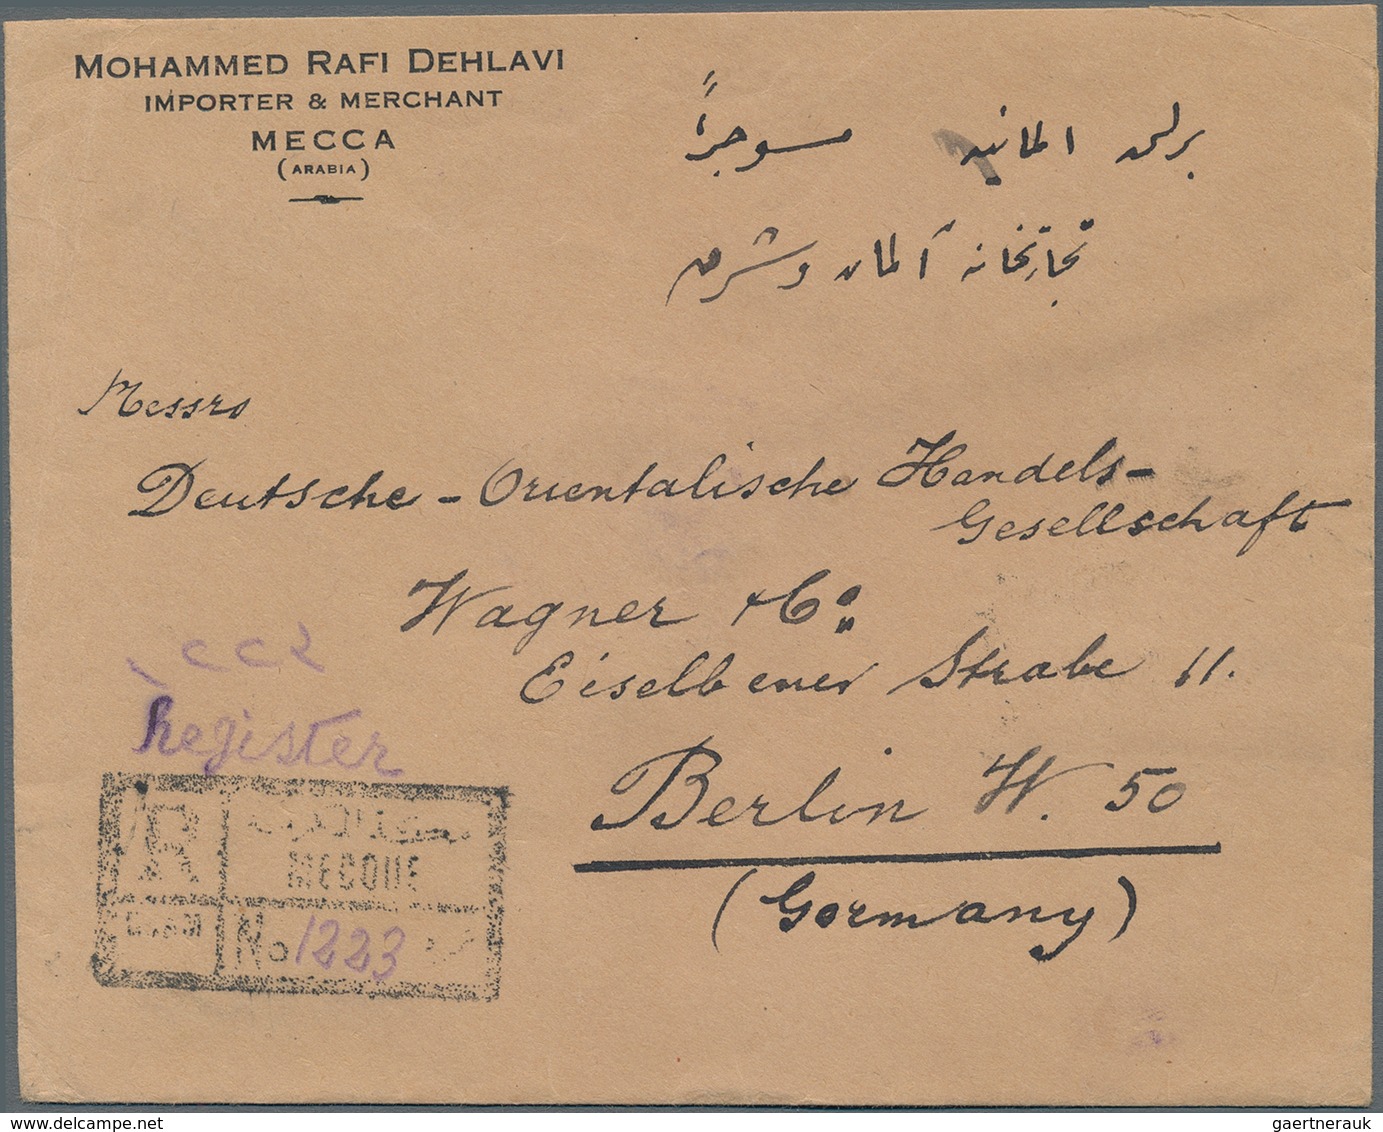 MOHAMMED RAFI DEHLAVI
IMPORTER & MERCHANT
MECCA
(ARABIA)
برلن المانيه مسوجرًا
تجارتخانه آلمان وشرق
Messrs
Deutsche - Orientalische Handels-
Gesellschaft
Wagner & Co.
Eiselbener Strabe 11.
Berlin W. 50
(Germany)
Register
R
MECQUE
No 1223
gaertnerauk